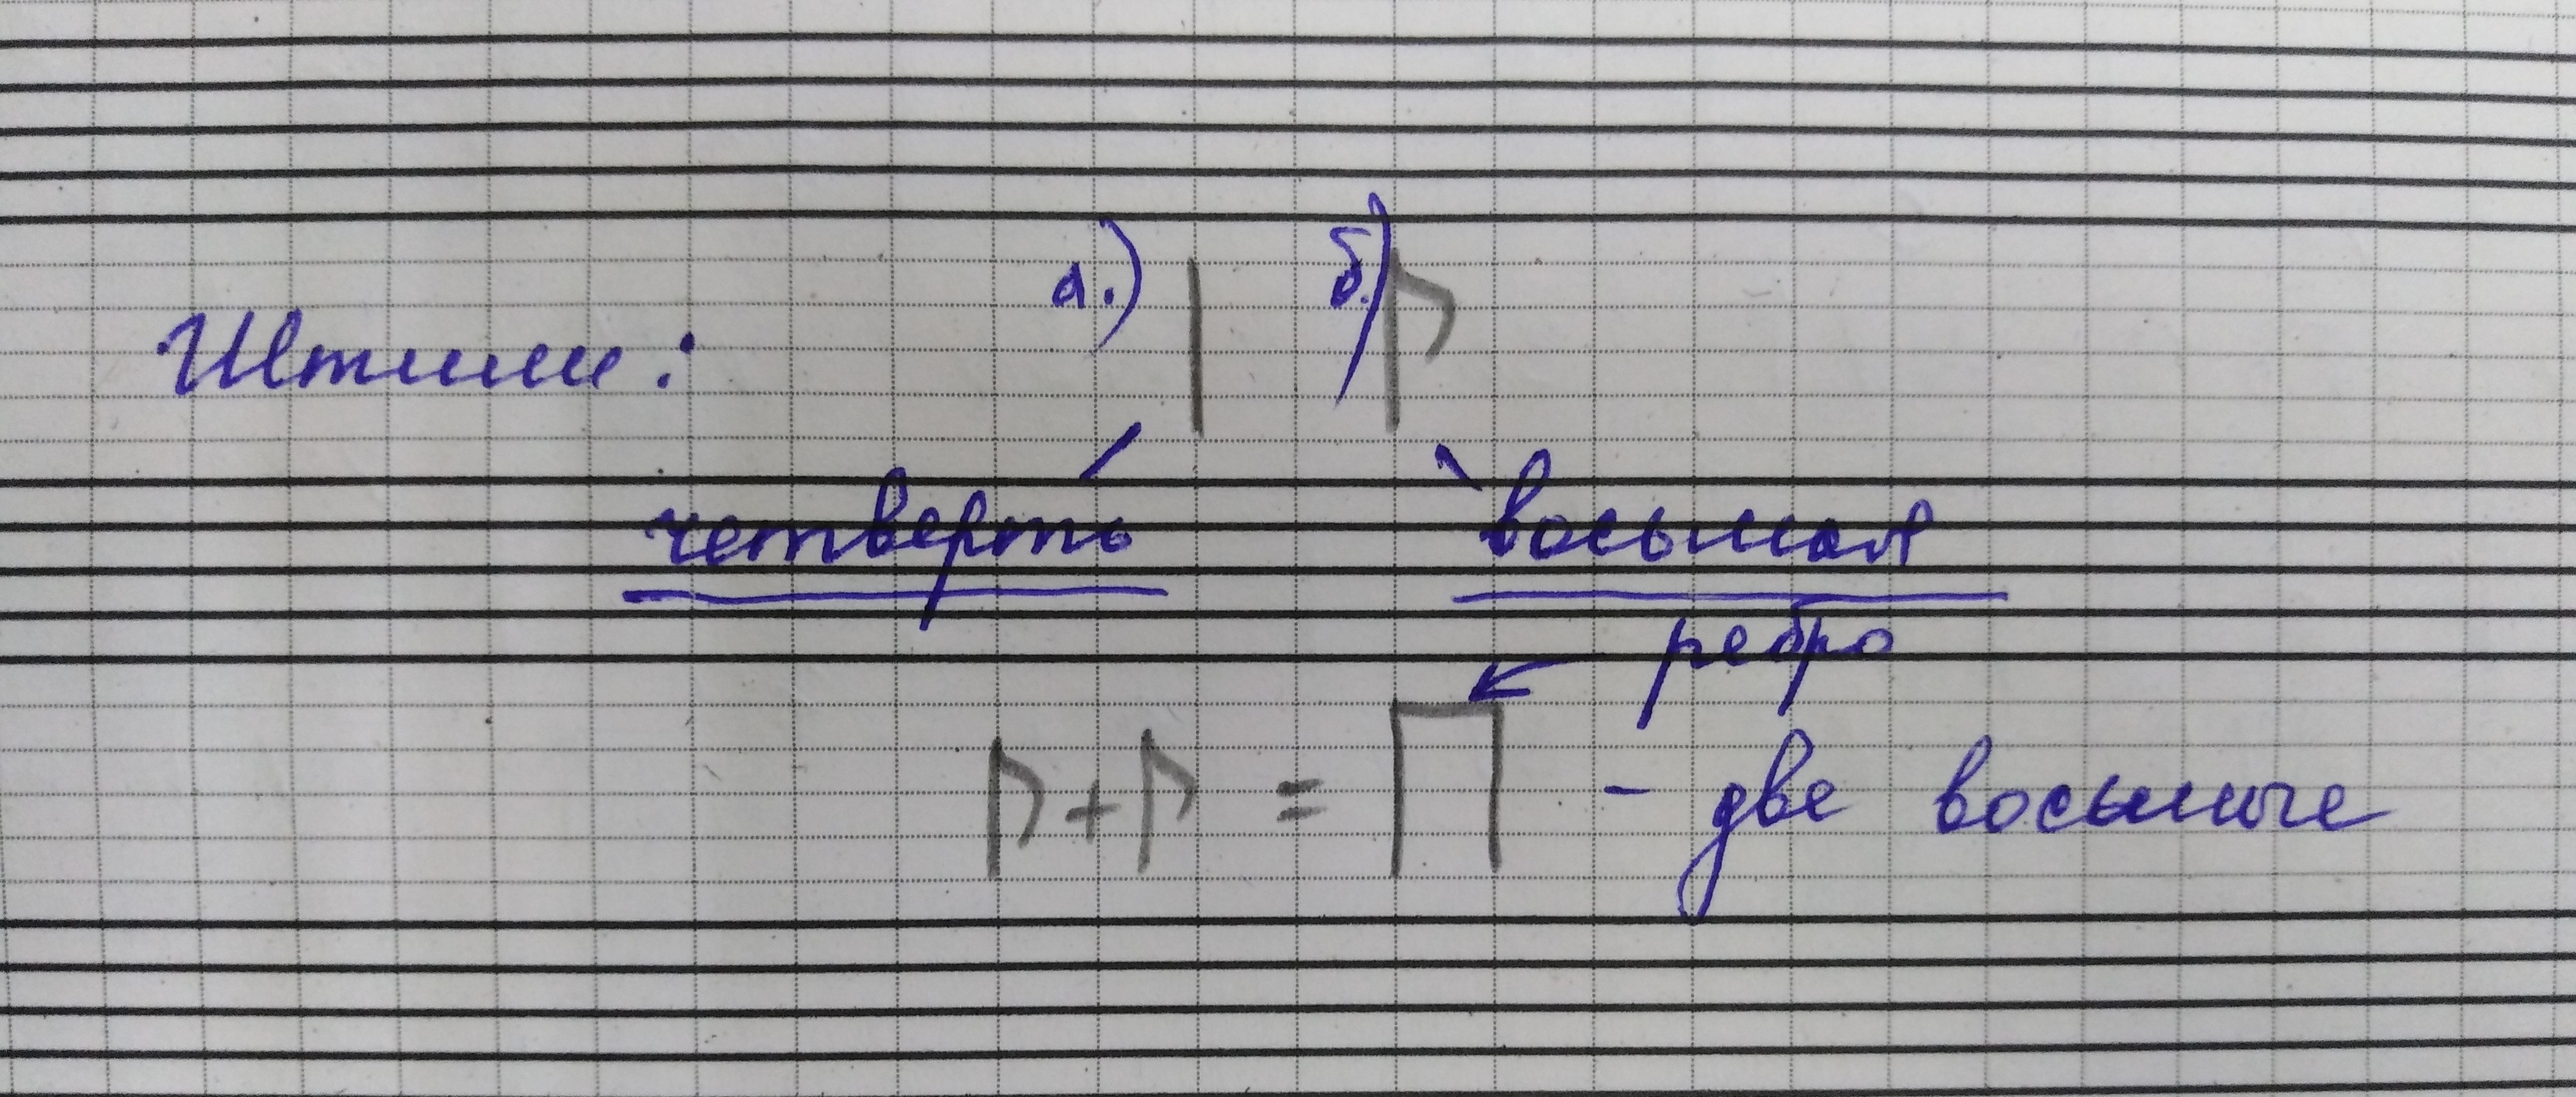 а.) б.)
Штили:
четверть восьмая
ребро
+ = - две восьмые